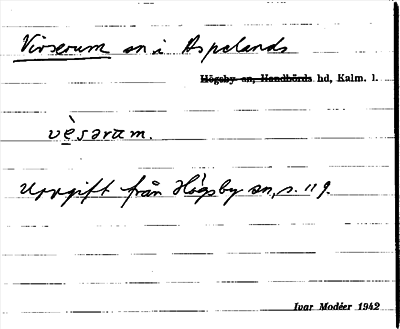 Virserum sn i Aspelands
Högsby sn, Handbörds hd, Kalm. l.
vèsəram.
Uppgift från Högsby sn, s. 119.
Ivar Modéer 1942